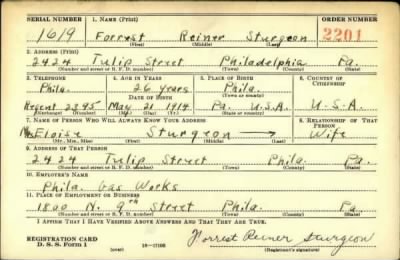 SERIAL NUMBER 1. NAME (Print) ORDER NUMBER
1619 Forrest Reiner Sturgeon 2201
(First) (Middle) (Last)
2. ADDRESS (Print)
2424 Tulip Street Philadelphia Pa.
(Number and street or R. F. D. number) (Town) (County) (State)
3. TELEPHONE 4. AGE IN YEARS 5. PLACE OF BIRTH 6. COUNTRY OF CITIZENSHIP
Phila. 26 years Phila.
DATE OF BIRTH (Town or county)
Regent 2395 May 21 1914 Pa. U.S.A. U.S.A.
(Exchange) (Number) (Mo.) (Day) (Yr.) (State or country)
7. NAME OF PERSON WHO WILL ALWAYS KNOW YOUR ADDRESS 8. RELATIONSHIP OF THAT PERSON
Mrs. Eloise Sturgeon Wife
(Mr., Mrs., Miss) (First) (Middle) (Last)
9. ADDRESS OF THAT PERSON
2424 Tulip Street Phila. Pa.
(Number and street or R. F. D. number) (Town) (County) (State)
10. EMPLOYER'S NAME
Phila. Gas Works
11. PLACE OF EMPLOYMENT OR BUSINESS
1800 N. 9th Street Phila. Pa.
(Number and street or R. F. D. number) (Town) (County) (State)
I AFFIRM THAT I HAVE VERIFIED ABOVE ANSWERS AND THAT THEY ARE TRUE.
REGISTRATION CARD
D. S. S. Form 1 (over) Forrest Reiner Sturgeon
(Registrant's signature)